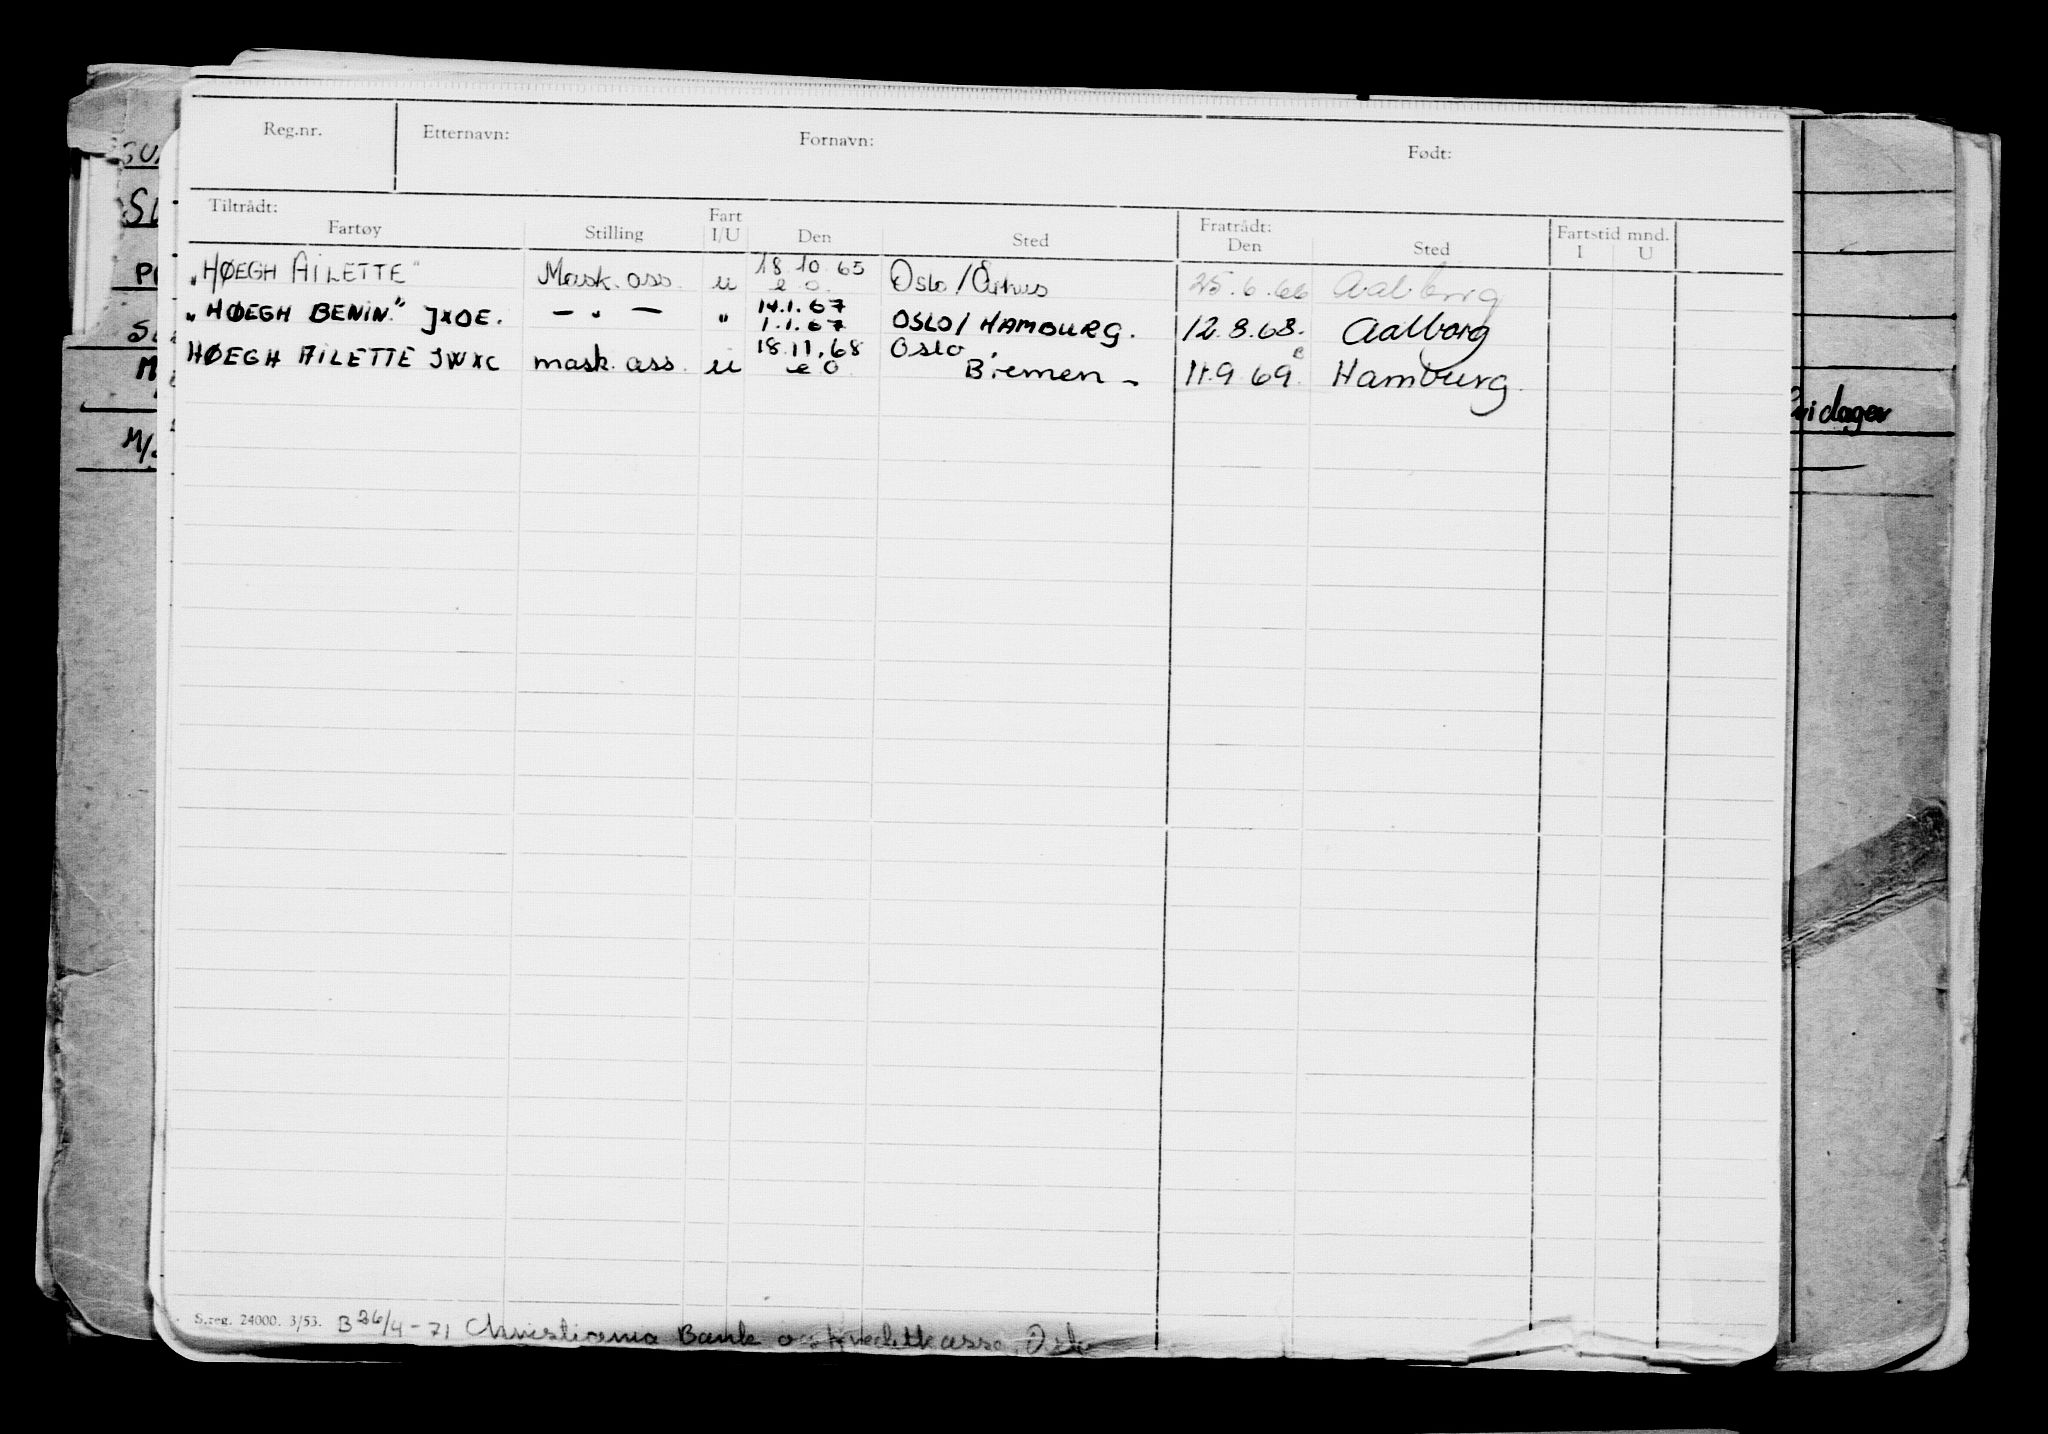 Reg.nr. Etternavn: Fornavn: Født:
Tiltrådt: Fart Fratrådt: Fartstid mnd.
Fartøy Stilling I/U Den Sted Den Sted I U
„HØEGH AILETTE" Mask. ass. u 18.10.65 e o. Oslo / Århus 25.6.66 Aalborg
„HØEGH BENIN." JXOE. — „ — " 14.1.67 1.1.67 OSLO / HAMBURG. 12.8.68. Aalborg
HØEGH AILETTE JWXC mask. ass. u 18.11.68 e o Oslo, Bremen - 11.9.69. Hamburg.
S.reg. 24000. 3/53. B 26/4-71 Christiania Bank og Kreditkasse, Oslo
SU
SL
M/
dager